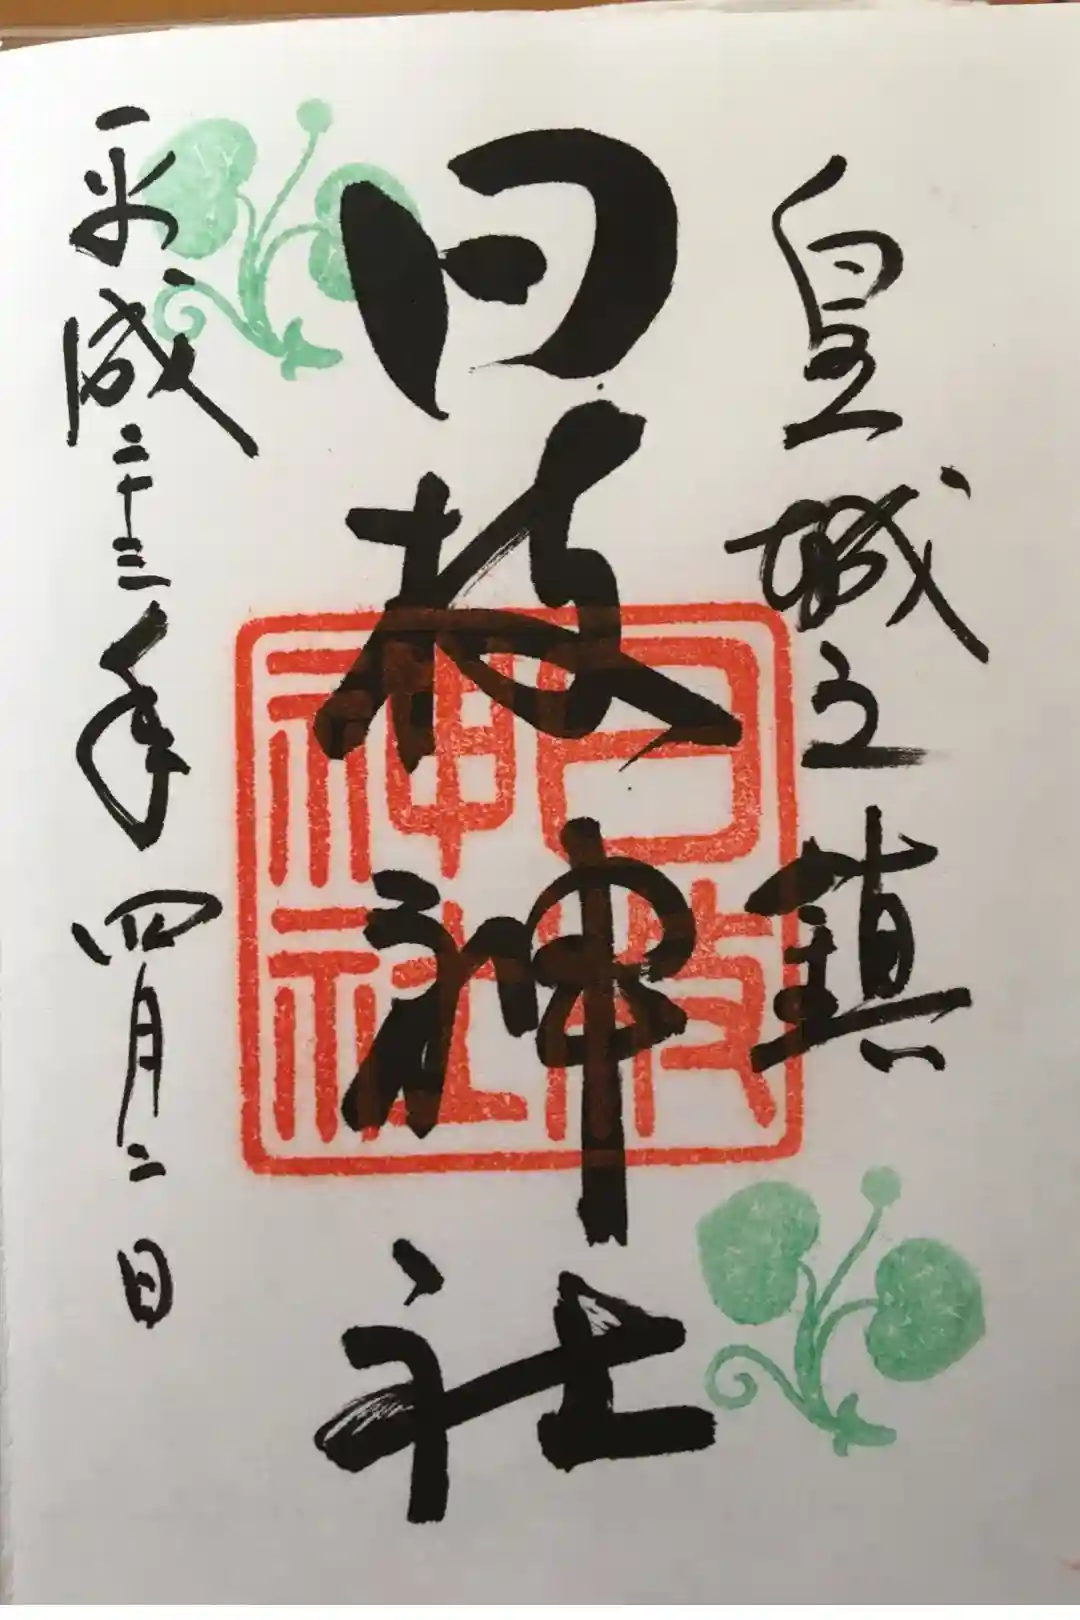 皇城之鎮
日枝神社
日枝
神社
平成二十三年四月二日